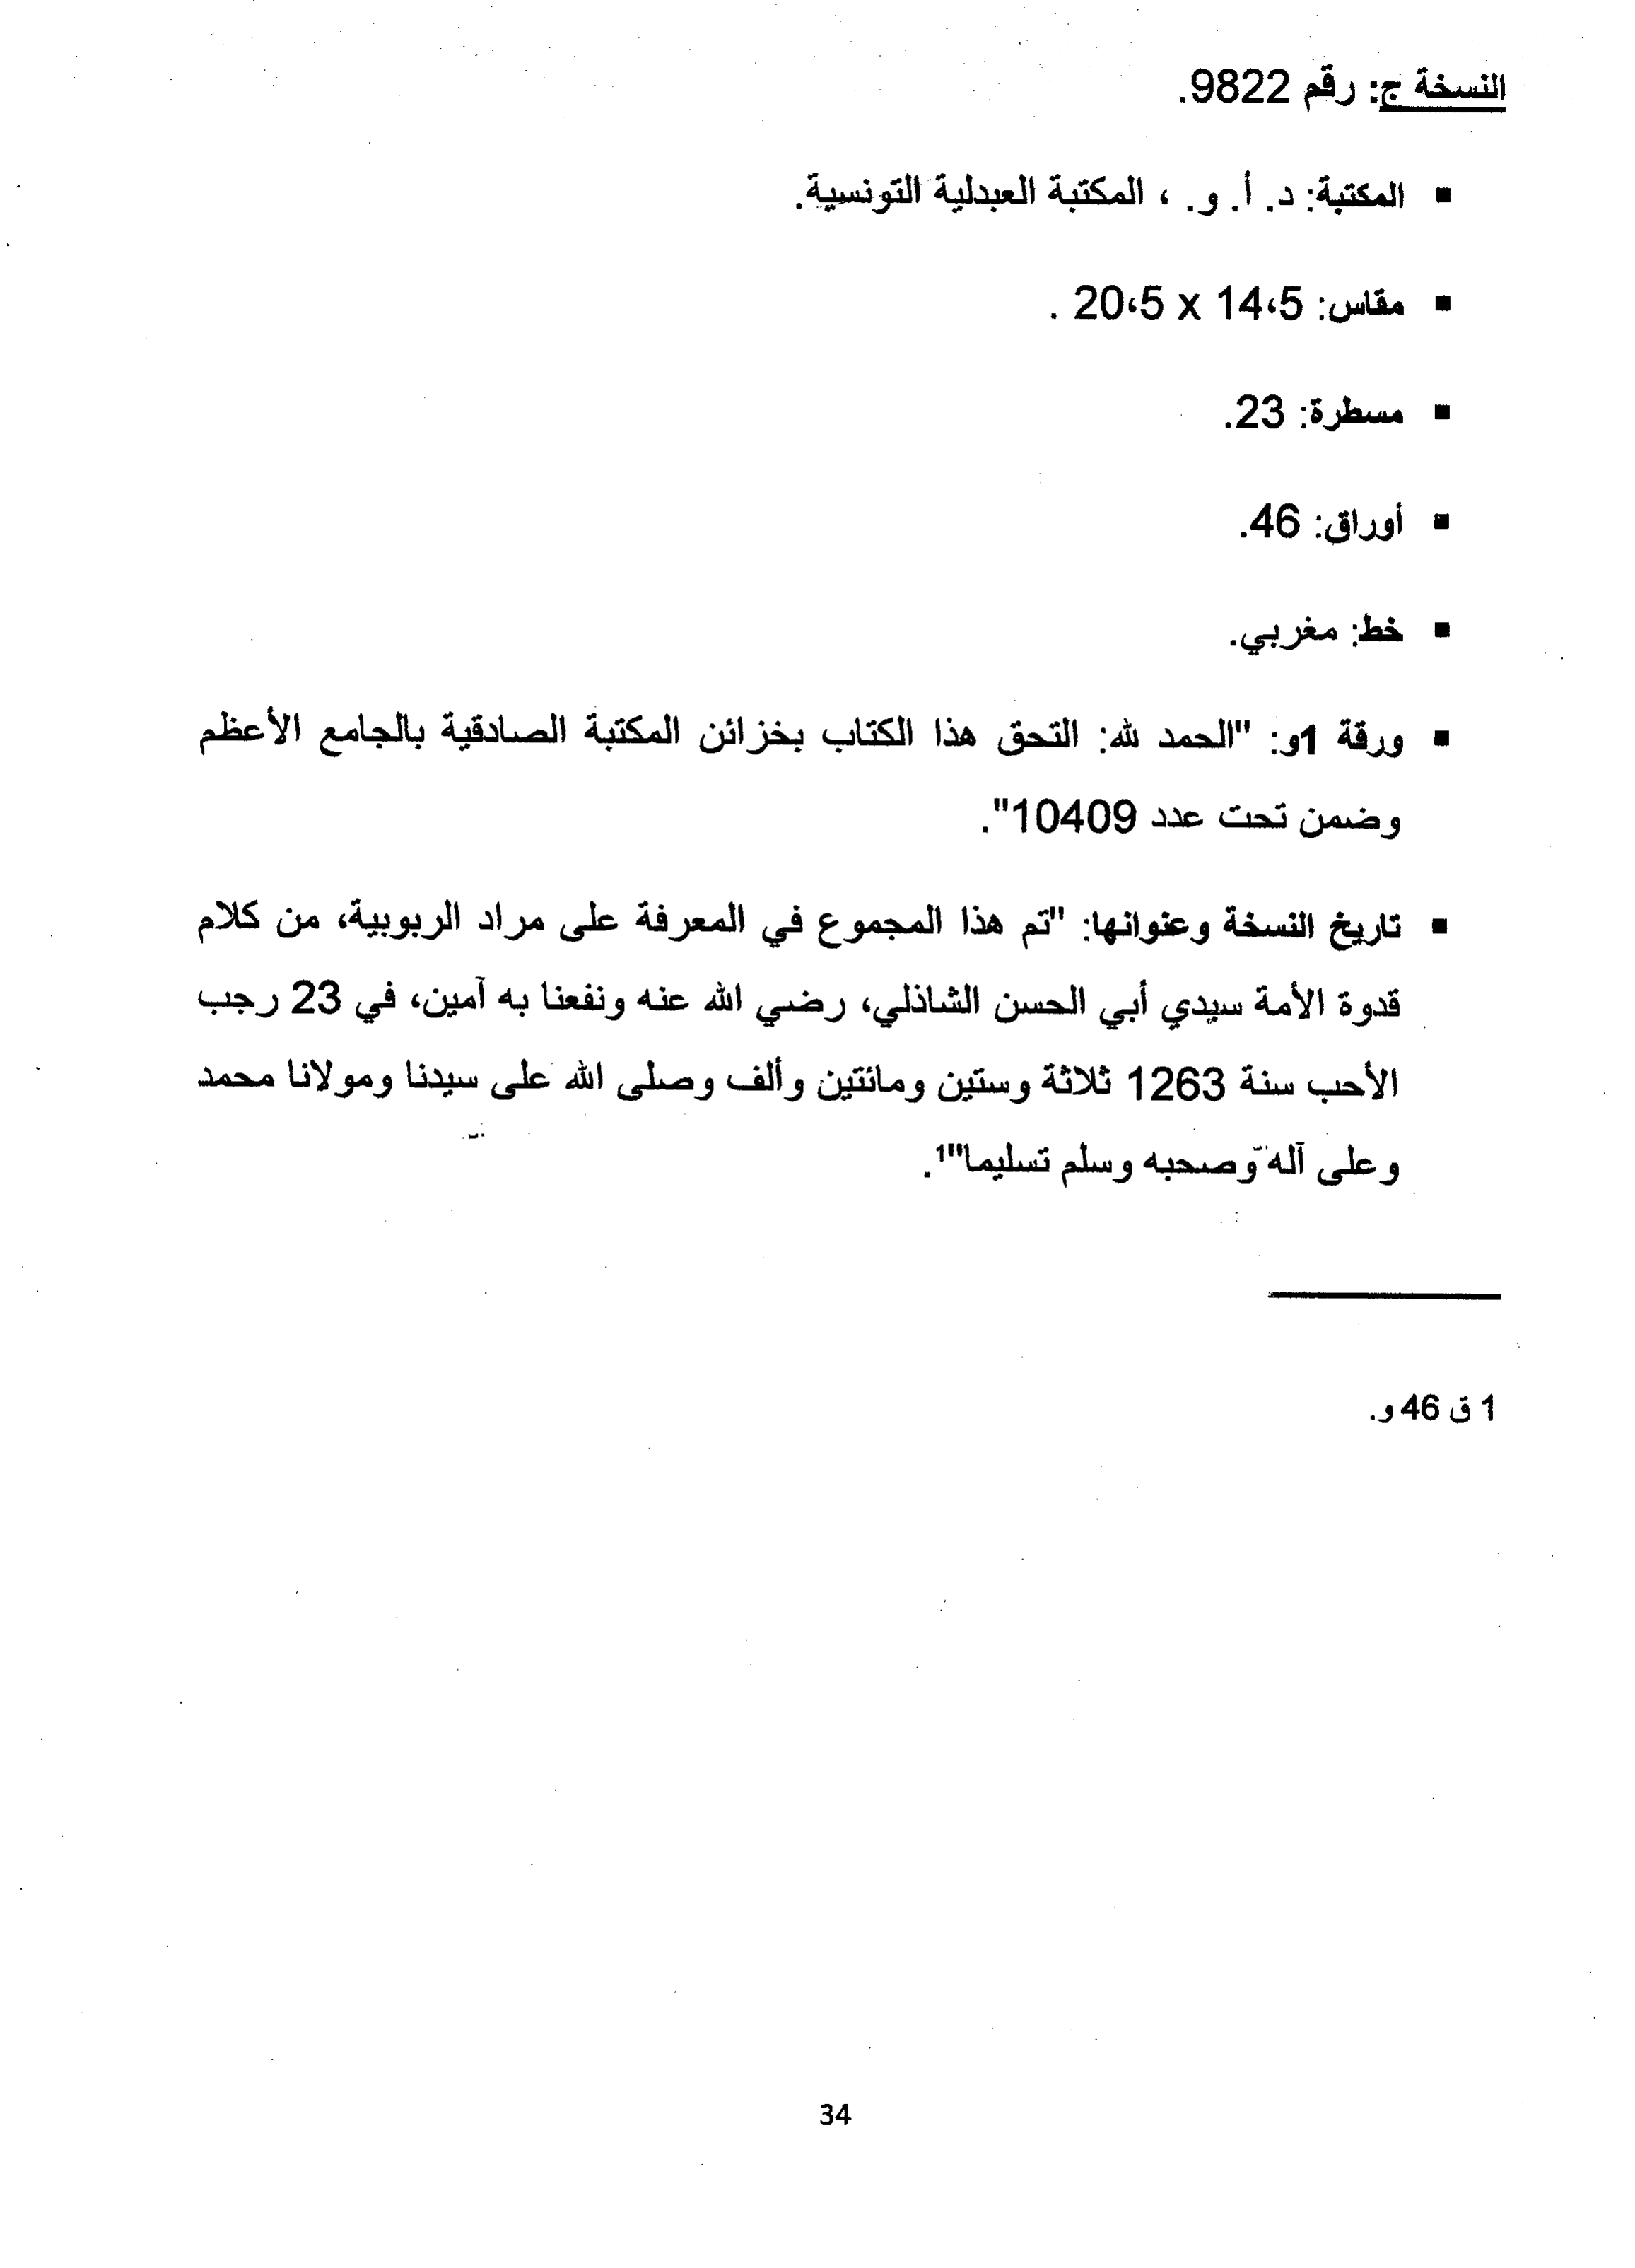 النسخة ج: رقم 9822.
▪ المكتبة: د. أ. و. ، المكتبة العبدلية التونسية.
▪ مقاس: 14،5 x 20،5 .
▪ مسطرة: 23.
▪ أوراق: 46.
▪ خط: مغربي.
▪ ورقة 1و: "الحمد لله: التحق هذا الكتاب بخزائن المكتبة الصادقية بالجامع الأعظم
وضمن تحت عدد 10409".
▪ تاريخ النسخة وعنوانها: "تم هذا المجموع في المعرفة على مراد الربوبية، من كلام
قدوة الأمة سيدي أبي الحسن الشاذلي، رضي الله عنه ونفعنا به آمين، في 23 رجب
الأحب سنة 1263 ثلاثة وستين ومائتين وألف وصلى الله على سيدنا ومولانا محمد
وعلى آله وصحبه وسلم تسليما"¹.
1 ق 46 و.
34